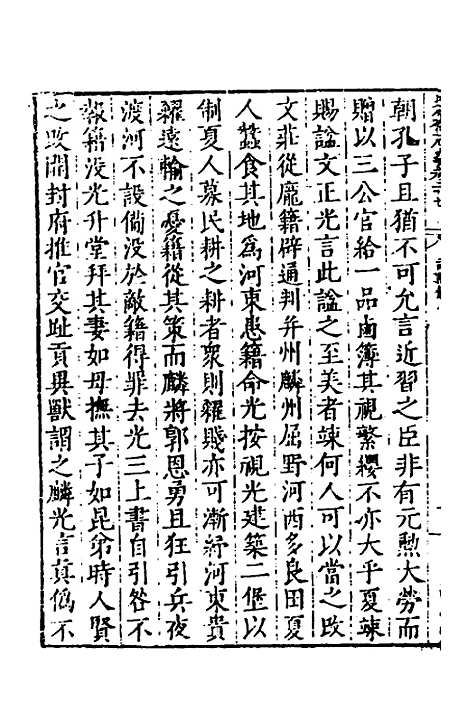 朝孔子且猶不可允言近習之臣非有元勲大勞而
贈以三公官給一品鹵簿其視繁纓不亦大乎夏竦
賜謚文正光言此謚之至美者竦何人可以當之改
文莊從龐籍辟通判并州麟州屈野河西多良田夏
人蠶食其地爲河東患籍命光按視光建築二堡以
制夏人募民耕之耕者衆則糴賤亦可漸紓河東貴
糴遠輸之憂籍從其策而麟將郭恩勇且狂引兵夜
渡河不設備没於敵籍得罪去光三上書自引咎不
報籍没光升堂拜其妻如母撫其子如昆弟時人賢
之改開封府推官交趾貢異獸謂之麟光言真僞不